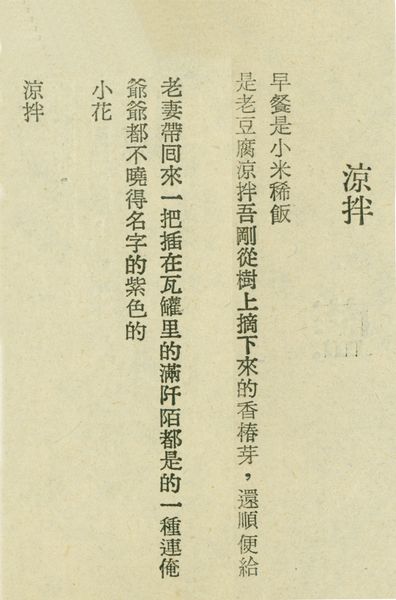 涼拌
早餐是小米稀飯
是老豆腐涼拌吾剛從樹上摘下來的香椿芽，還順便給
老妻帶回來一把插在瓦罐里的滿阡陌都是的一種連俺
爺爺都不曉得名字的紫色的
小花
涼拌